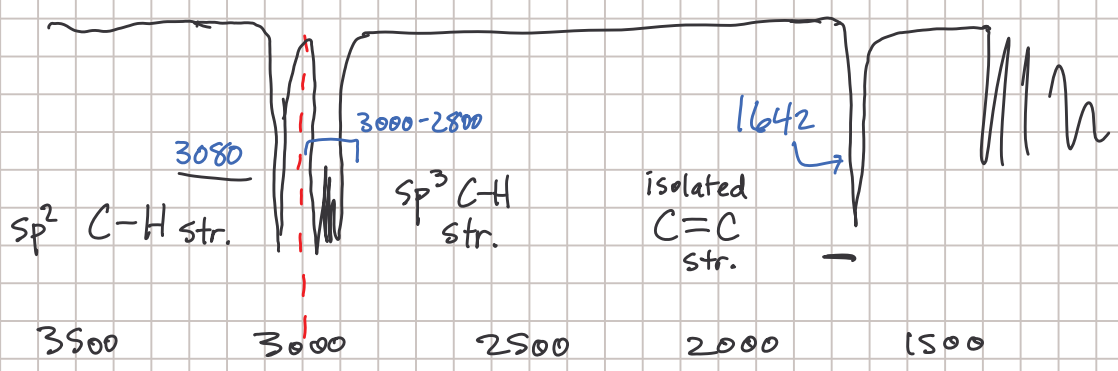 3000-2800
1642
3080
sp² C-H str.
sp³ C-H
str.
isolated
C=C
str.
3500 3000 2500 2000 1500